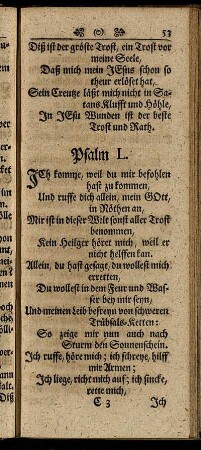 53
Diß ist der gröste Trost, ein Trost vor
meine Seele,
Daß mich mein JEsus schon so
theur erlöset hat,
Sein Creutze läßt mich nicht in Sa-
tans Klufft und Höhle,
In JEsu Wunden ist der beste
Trost und Rath.
Psalm L.
JCh komme, weil du mir befohlen
hast zu kommen,
Und ruffe dich allein, mein GOtt,
in Nöthen an,
Mir ist in dieser Welt sonst aller Trost
benommen,
Kein Heilger höret mich, weil er
nicht helffen kan.
Allein, du hast gesagt, du wollest mich
erretten,
Du wollest in dem Feur und Was-
ser bey mir seyn,
Und meinen Leib befreyn von schweren
Trübsals-Ketten:
So zeige mir nun auch nach
Sturm den Sonnenschein.
Ich ruffe, höre mich; ich schreye, hilff
mir Armen;
Ich liege, richt mich auf; ich sincke,
rette mich,
C 3 Ich